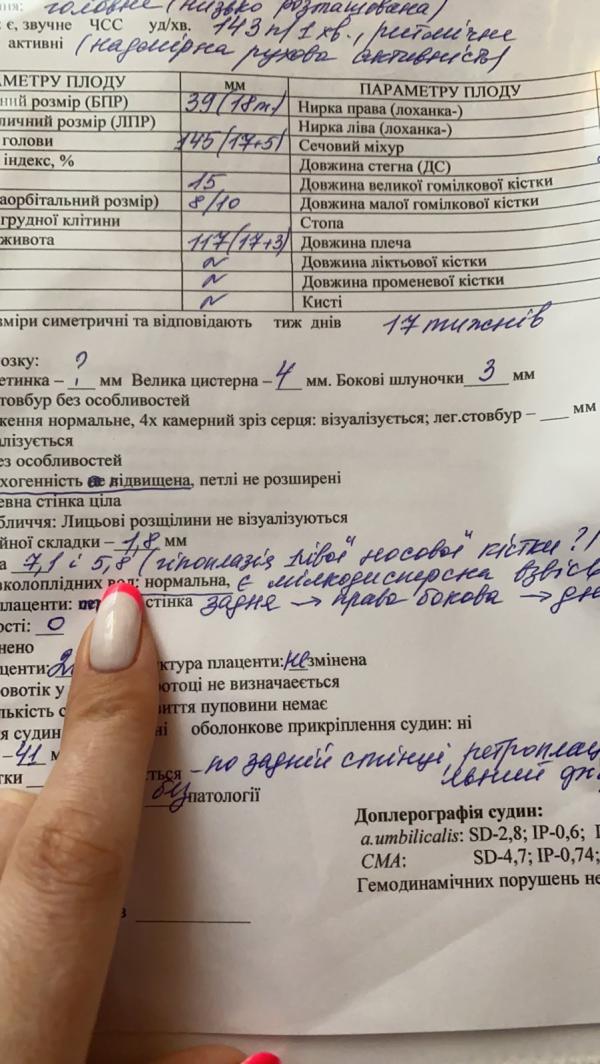 головне (низько розташована)
є, звучне ЧСС уд/хв. 143 п/1 хв., ритмічне
активні (надмірна рухова активність)
АМЕТРУ ПЛОДУ мм ПАРАМЕТРУ ПЛОДУ
ний розмір (БПР) 39 (18т) Нирка права (лоханка-)
личний розмір (ЛПР) Нирка ліва (лоханка-)
голови 145 (17+5) Сечовий міхур
індекс, % Довжина стегна (ДС)
15 Довжина великої гомілкової кістки
аорбітальний розмір) 8/10 Довжина малої гомілкової кістки
грудної клітини Стопа
живота 117 (17+3) Довжина плеча
~ Довжина ліктьової кістки
~ Довжина променевої кістки
~ Кисті
зміри симетричні та відповідають тиж днів 17 тижнів
озку: ?
етинка – мм Велика цистерна – 4 мм. Бокові шлуночки 3 мм
товбур без особливостей
ження нормальне, 4х камерний зріз серця: візуалізується; лег.стовбур – ___ мм
алізується
ез особливостей
хогенність не підвищена, петлі не розширені
евна стінка ціла
бличчя: Лицьові розщілини не візуалізуються
йної складки – 1,8 мм
а 7,1 і 5,8 (гіпоплазія лівої носової кістки?)
вколоплідних вод: нормальна, є мілкодисперсна взвісь
плаценти: стінка задня → права бокова → дн
ості: 0
нено
центи: 2 уктура плаценти: не змінена
овотік у отоці не визначається
лькість с виття пуповини немає
я судин ні оболонкове прикріплення судин: ні
– 41 м ється – по задній стінці ретроплац
тки льний
патології
Доплерографія судин:
a.umbilicalis: SD-2,8; IP-0,6;
СМА: SD-4,7; IP-0,74;
Гемодинамічних порушень не
в